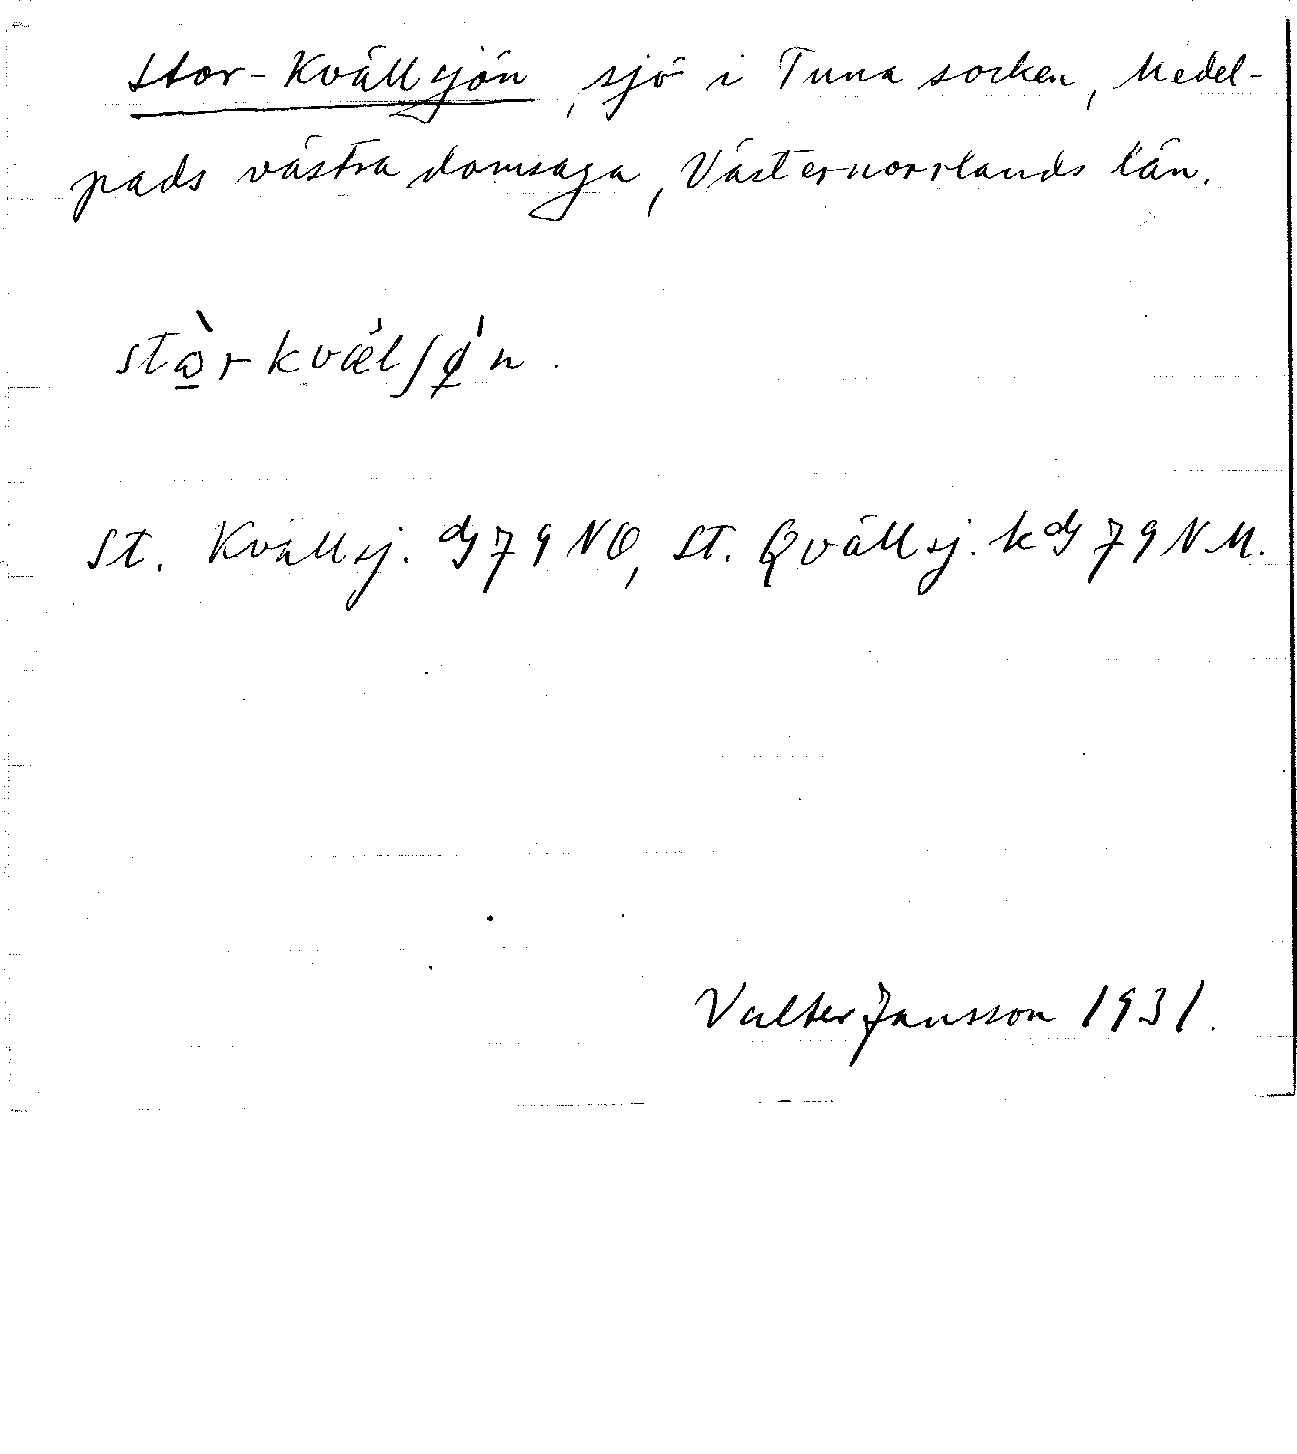 Stor-Kvällsjön, sjö i Tuna socken, Medel-
pads västra domsaga, Västernorrlands län.
St. Kvällsj. 79 NO, St. Qvällsj. k 79 NM.
Valter Jansson 1931.